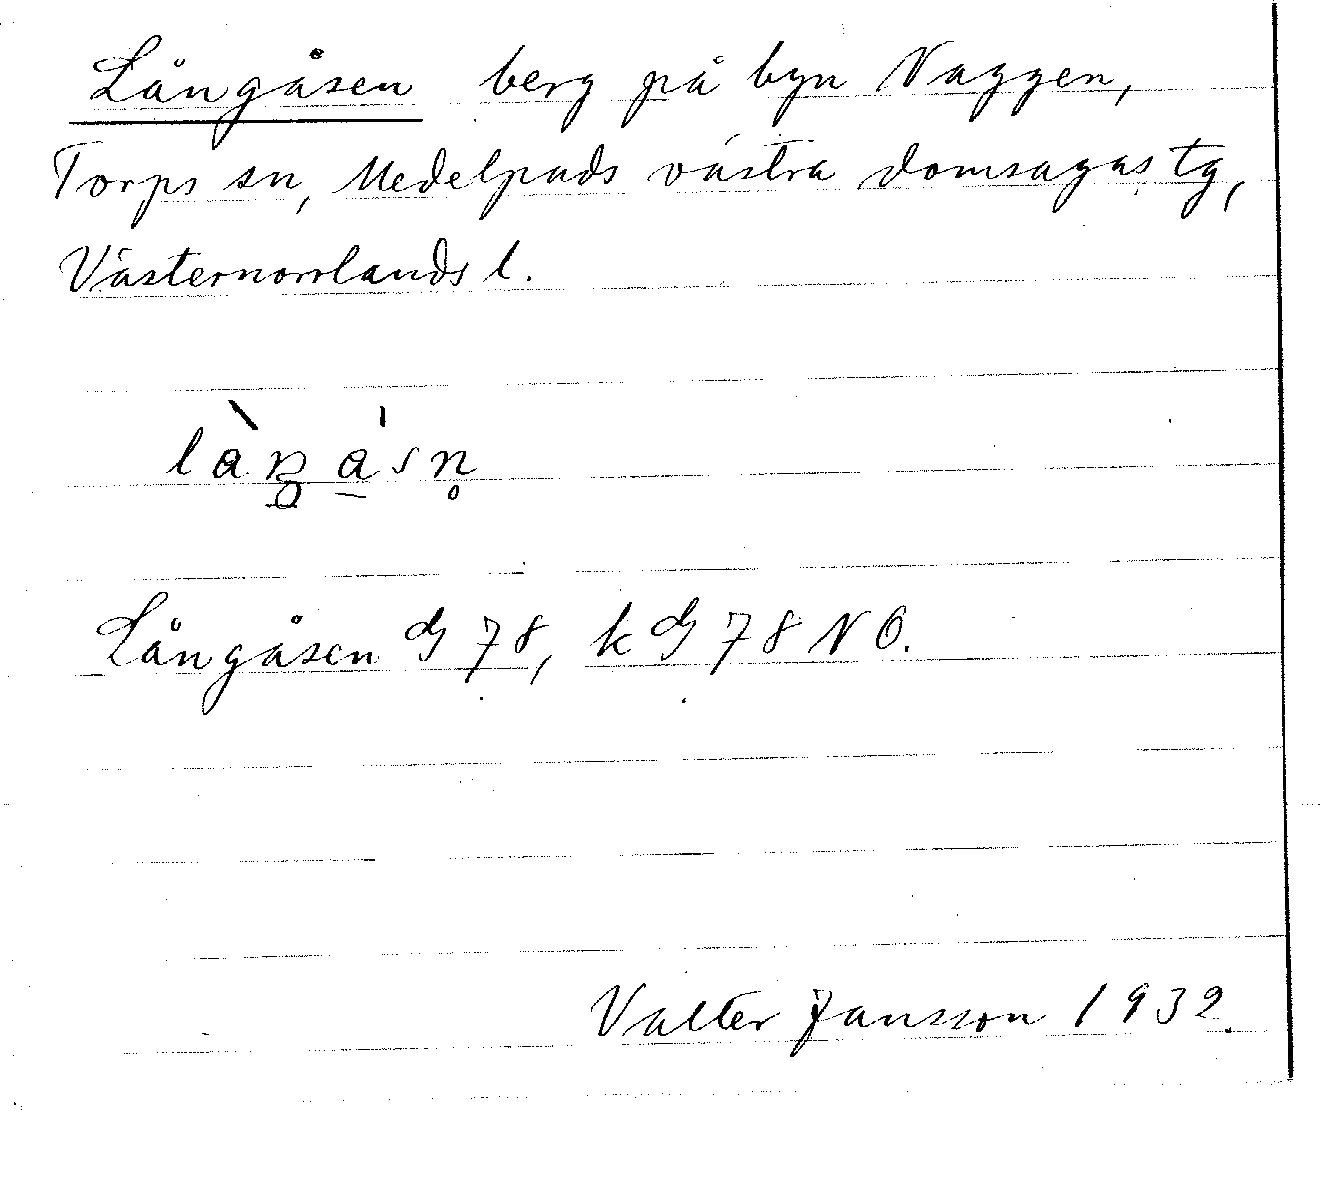 Långåsen berg på byn Naggen,
Torps sn, Medelpads västra domsagas tg,
Västernorrlands l.
Långåsen G 78, k G 78 N O.
Valter Jansson 1932.